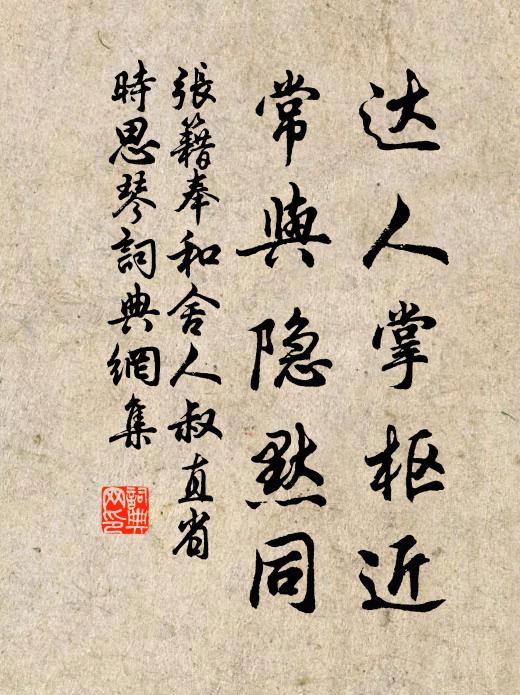 达人掌枢近
常與隐默同
張籍奉和舍人叔直省
時思琴詞典網集
詞典
网印